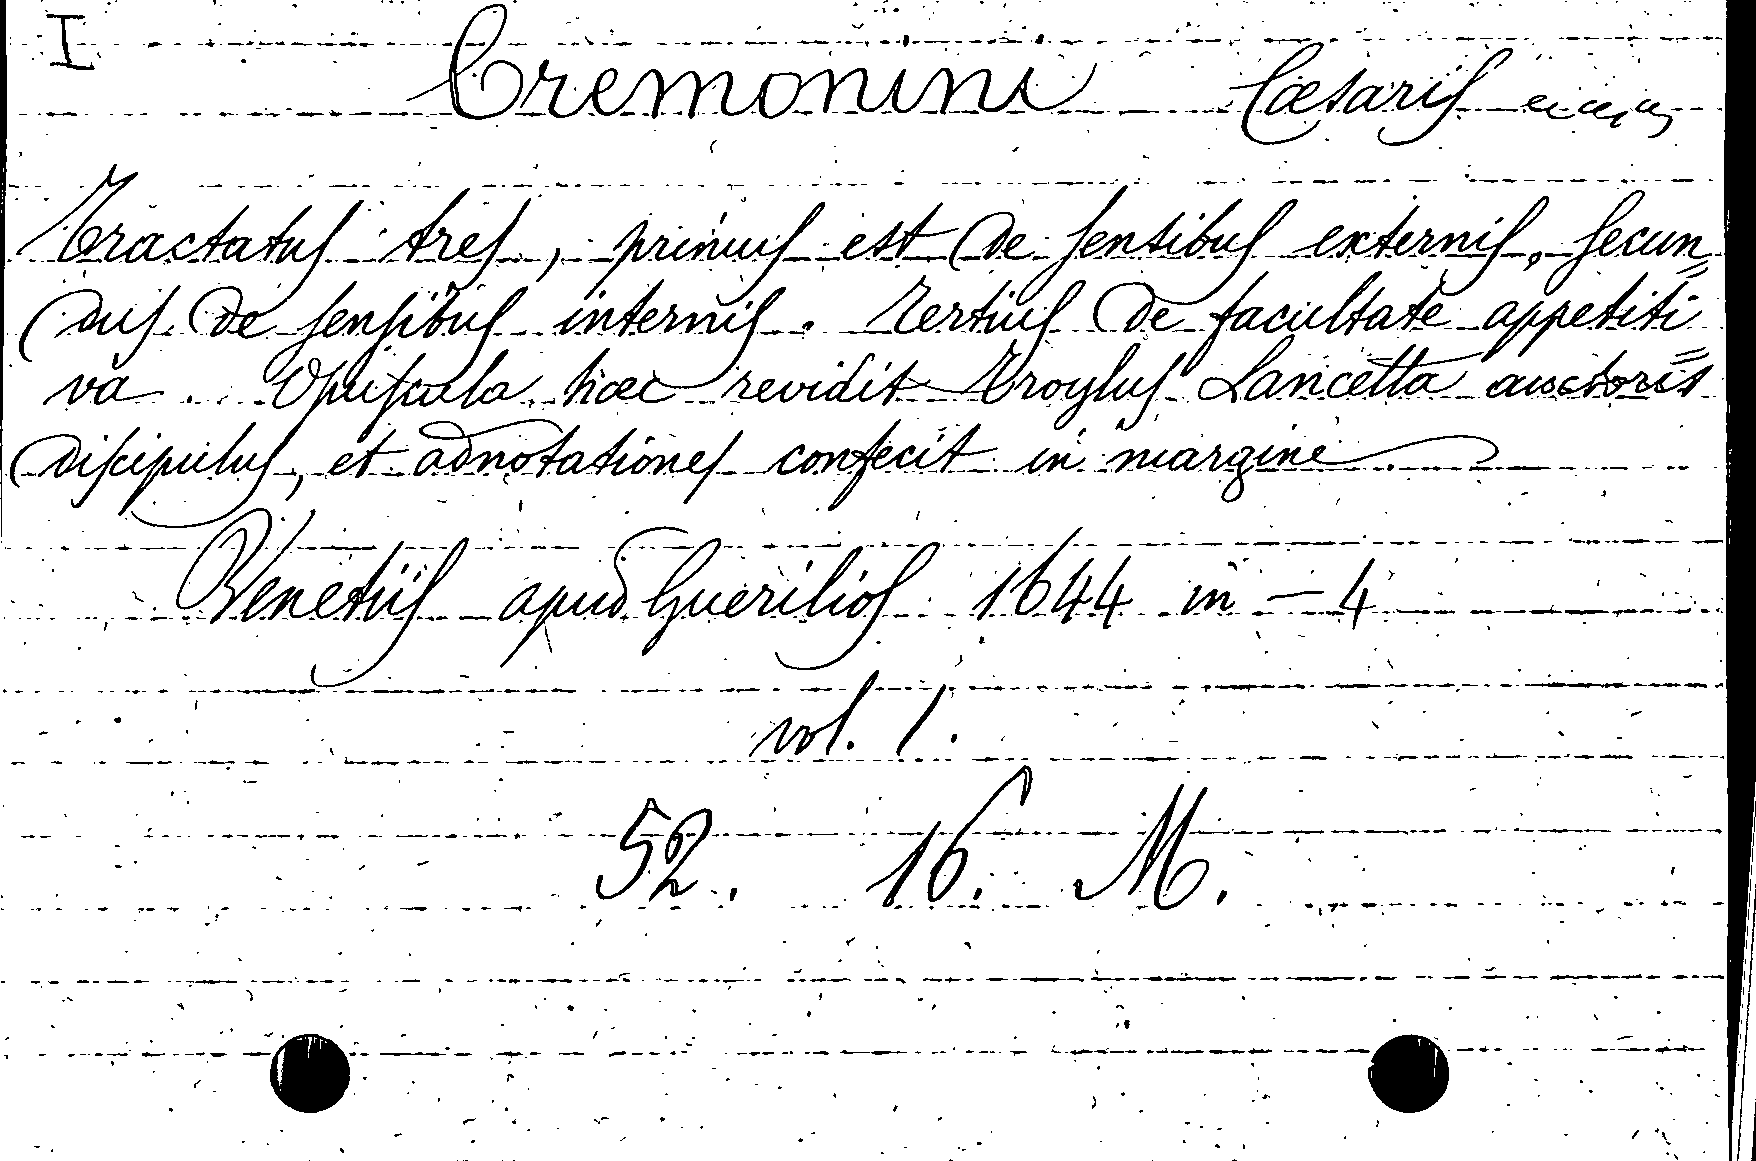 I
Cremonini Cæsaris
Tractatus tres, primus est de sensibus externis, secun=
dus de sensibus internis. Tertius de facultate appetiti=
va. Opuscula hæc revidit Troylus Lancetta auctoris
discipulus, et adnotationes confecit in margine.
Venetiis apud Guerilios 1644 in-4
vol. 1.
52. 16. M.